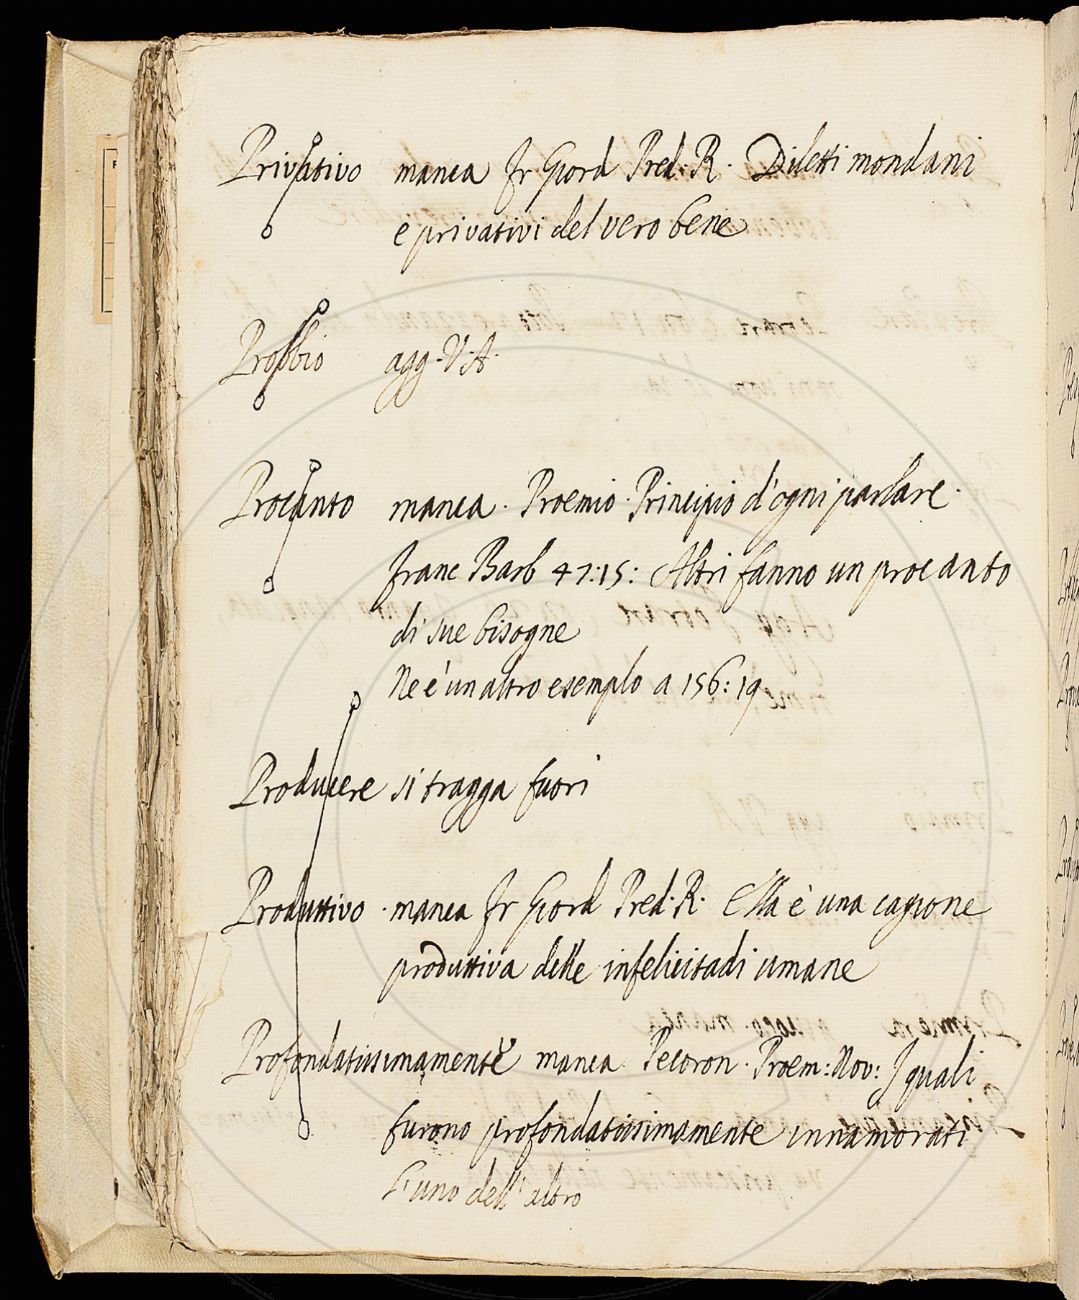 Privativo manca Fr Giord Pred. R. Diletti mondani
e privativi del vero bene
Probbio agg. V. A.
Procanto manca. Proemio. Principio d'ogni parlare.
franc Barb 47:15: Altri fanno un procanto
di sue bisogne
Ne è un altro esemplo a 156:19
Producere si tragga fuori
Produttivo manca Fr Giord Pred. R. Ella è una cagione
produttiva delle infelicitadi umane
Profondatissimamente manca Pecoron. Proem: Nov: I quali
furono profondatissimamente innamorati
l'uno dell'altro